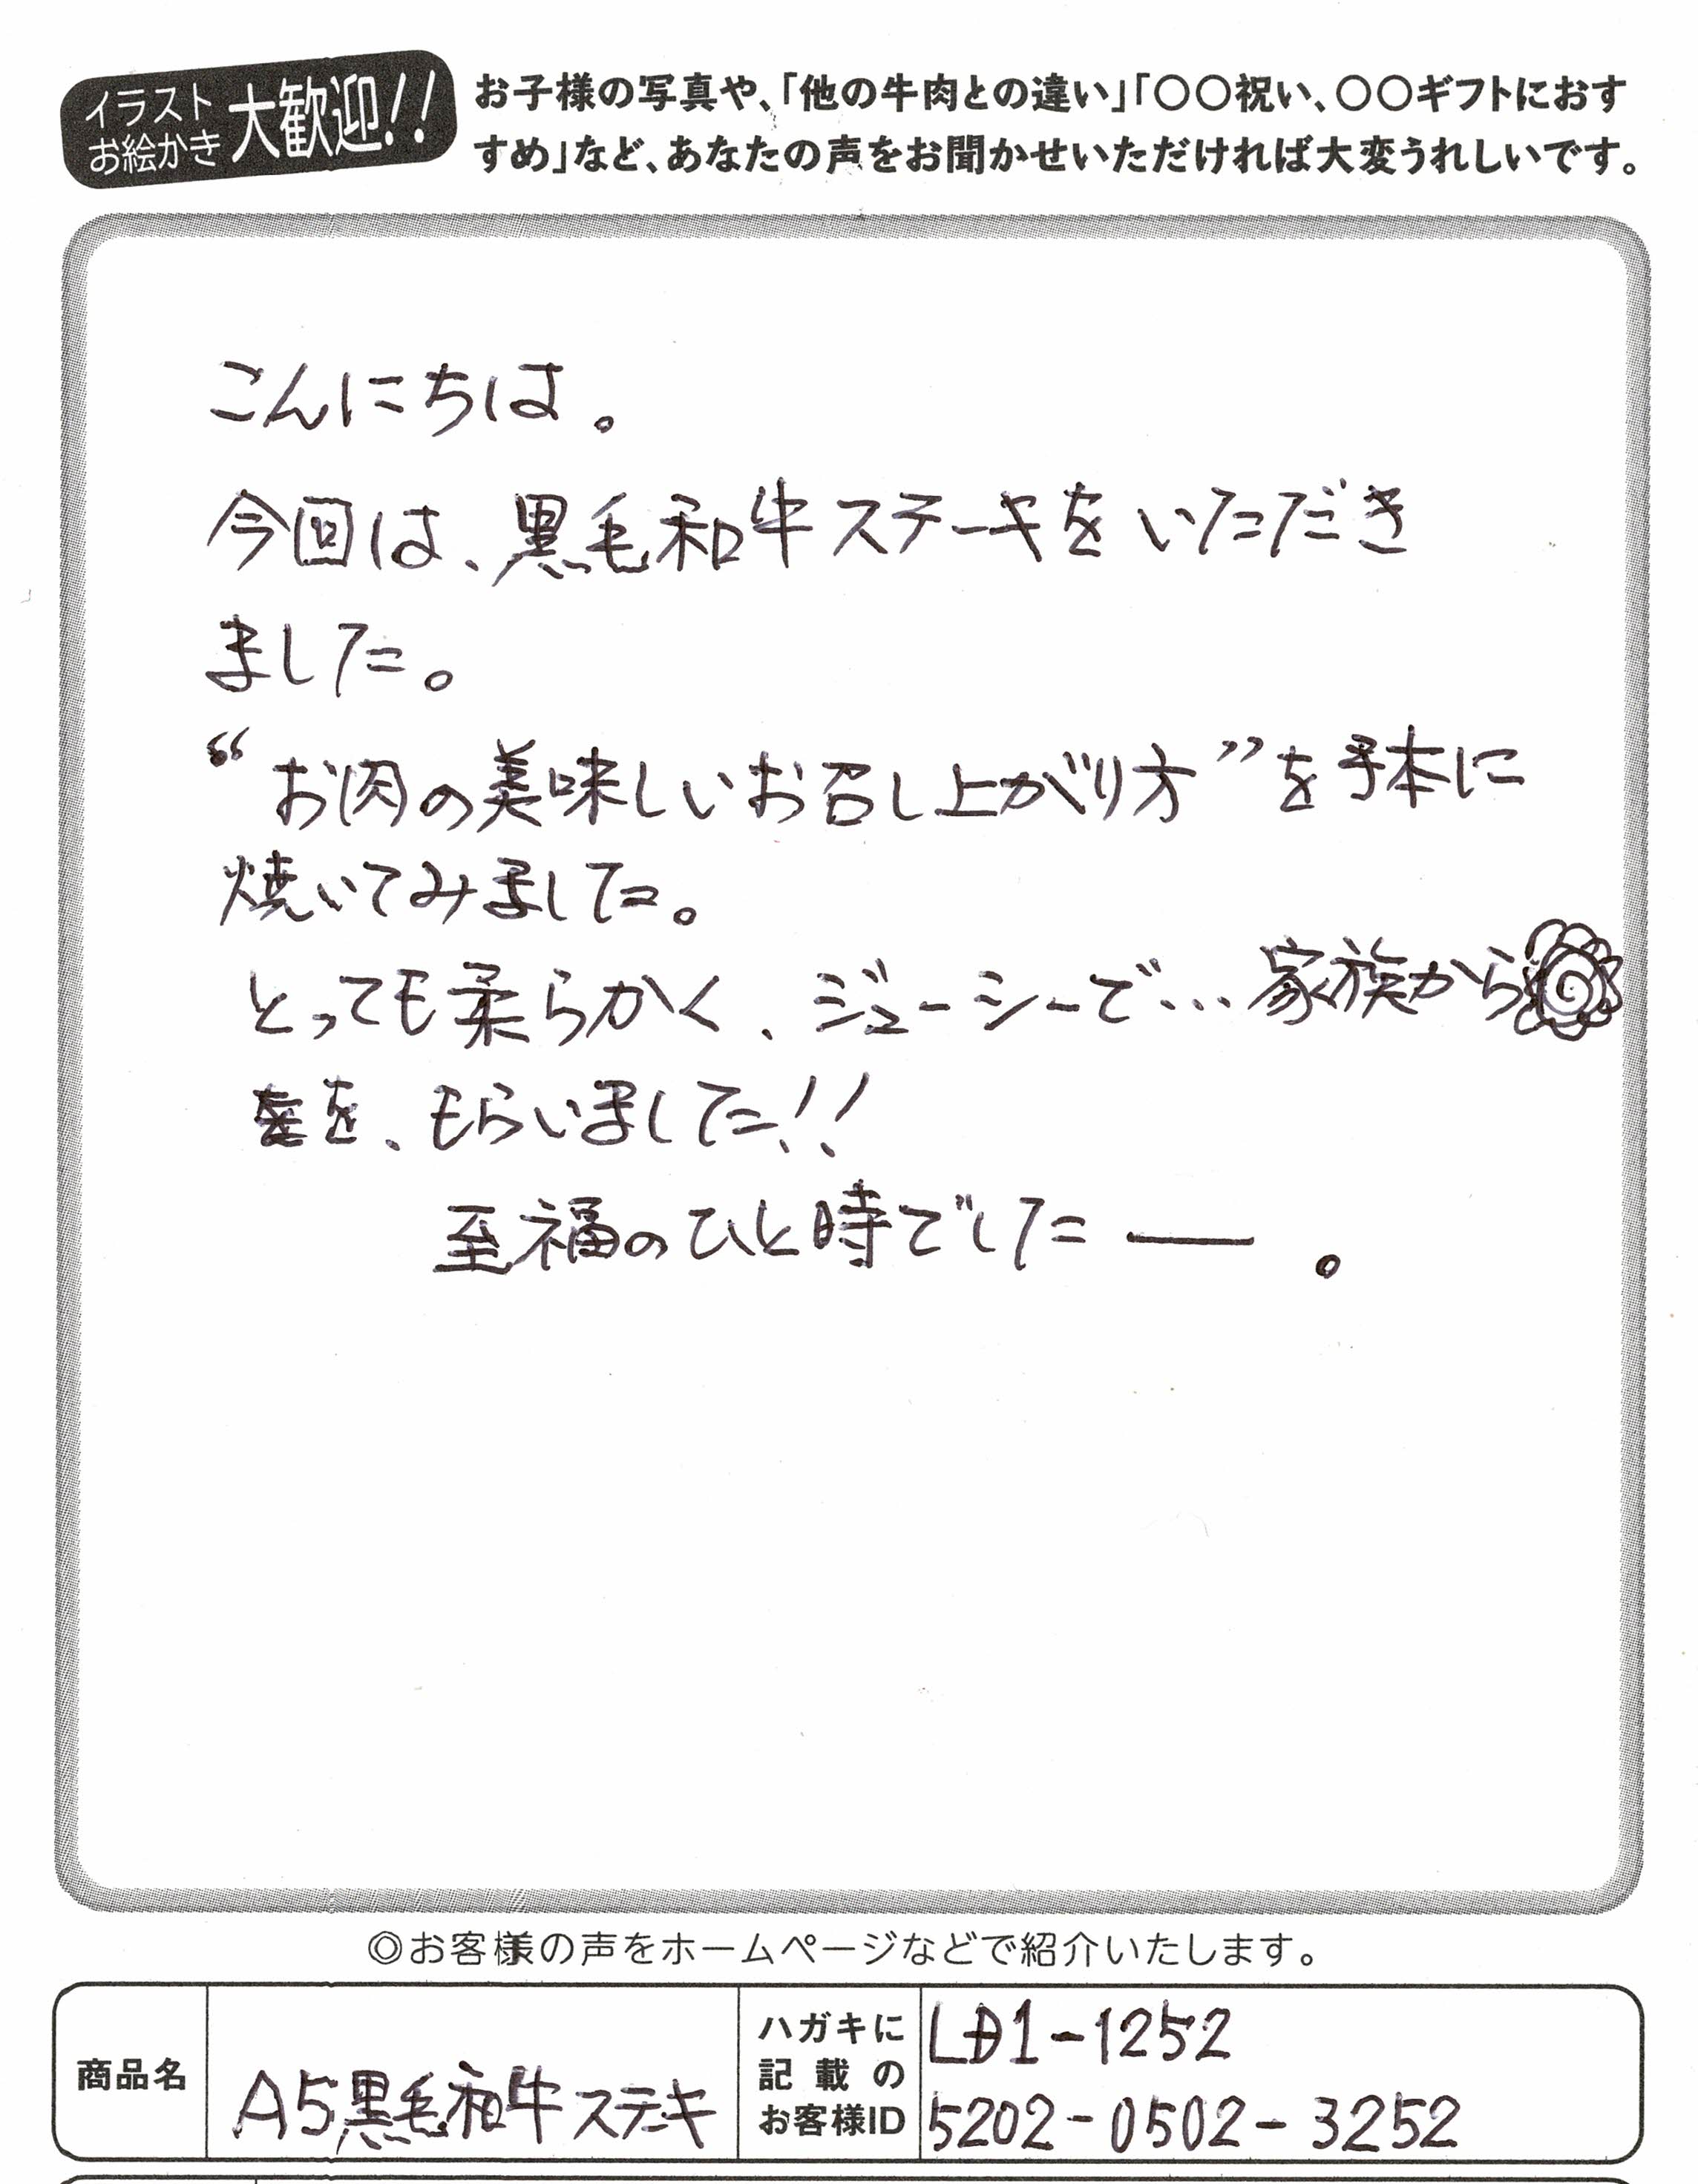 イラスト
お絵かき
大歓迎!!
お子様の写真や、「他の牛肉との違い」「〇〇祝い、〇〇ギフトにおす
すめ」など、あなたの声をお聞かせいただければ大変うれしいです。
こんにちは。
今回は、黒毛和牛ステーキをいただき
ました。
“お肉の美味しいお召し上がり方”を手本に
焼いてみました。
とっても柔らかく、ジューシーで…家族から
を、もらいました!!
至福のひと時でした―。
◎お客様の声をホームページなどで紹介いたします。
商品名
A5黒毛和牛ステキ
ハガキに
記載の
お客様ID
LD1-1252
5202-0502-3252